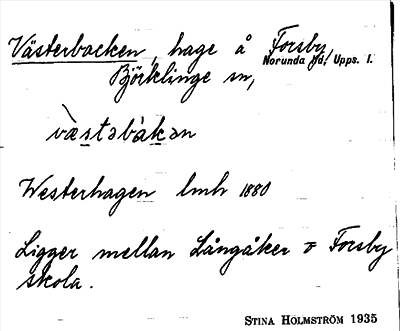 Västerbacken, hage å Forsby,
Norunda hd. Upps. l.
Björklinge sn,
væ̀stəbàkən
Westerhagen lmh 1880
Ligger mellan Långåker o Forsby
skola.
STINA HOLMSTRÖM 1935